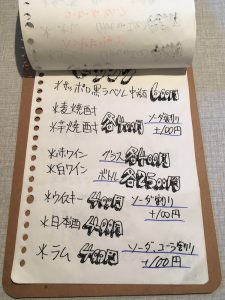 ※サッポロ黒ラベル中瓶 600円
※麦焼酎
※芋焼酎 各400円 ソーダ割り +100円
※赤ワイン グラス 各400円
※白ワイン ボトル 各2500円
※ウイスキー 400円 ソーダ割り +100円
※日本酒 400円
※ラム 400円 ソーダ、コーラ割り +100円